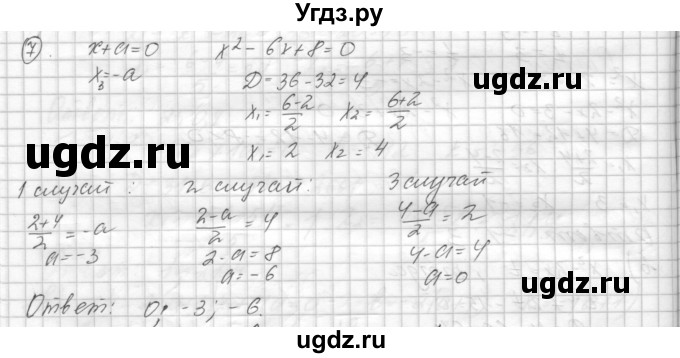 Угдз.ру
⑦. x+a=0    x² - 6x+8=0
x₃=-a    D=36-32=4
x₁= (6-2)/2    x₂= (6+2)/2
x₁=2    x₂=4
ugdz.ru    ugdz.ru
1 случай :    2 случай:    3 случай
(2+4)/2 = -a    (2-a)/2 = 4    (4-a)/2 = 2
a=-3    2-a=8    4-a=4
a=-6    a=0
Ответ: 0; -3; -6.
ugdz.ru    ugdz.ru